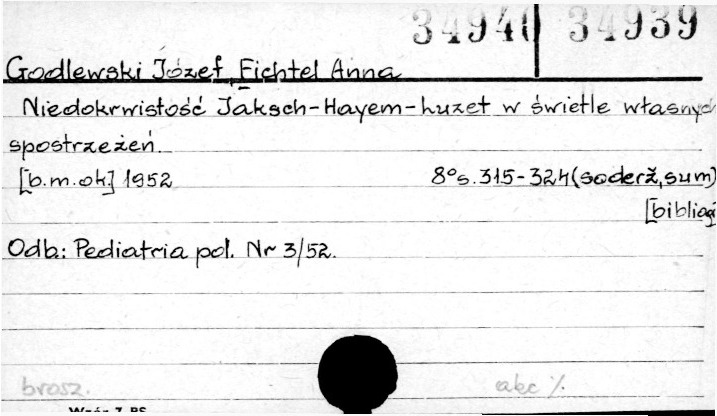 34940 34939
Godlewski Józef, Fichtel Anna
Niedokrwistość Jaksch-Hayem-Luzet w świetle własnych
spostrzeżeń.
[b.m.ok] 1952 8° s. 315-324 (soderž, sum)
[bibliogr
Odb: Pediatria pol. Nr 3/52.
brosz. akc %
Wzór 7 BS